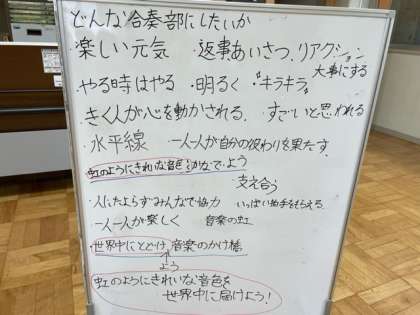 どんな合奏部にしたいか
楽しい元気 ・返事あいさつ、リアクション
大事にする
・やる時はやる ・明るく ・"キラキラ"
・きく人が心を動かされる、 すごいと思われる
・水平線 ・一人一人が自分の役わりを果たす
虹のようにきれいな音色をかなでよう
支え合う
・人にたよらずみんなで協力 いっぱい拍手をもらえる
・一人一人が楽しく 音楽の虹
・世界中にとどけ 音楽のかけ橋
よう
虹のようにきれいな音色を
世界中に届けよう!